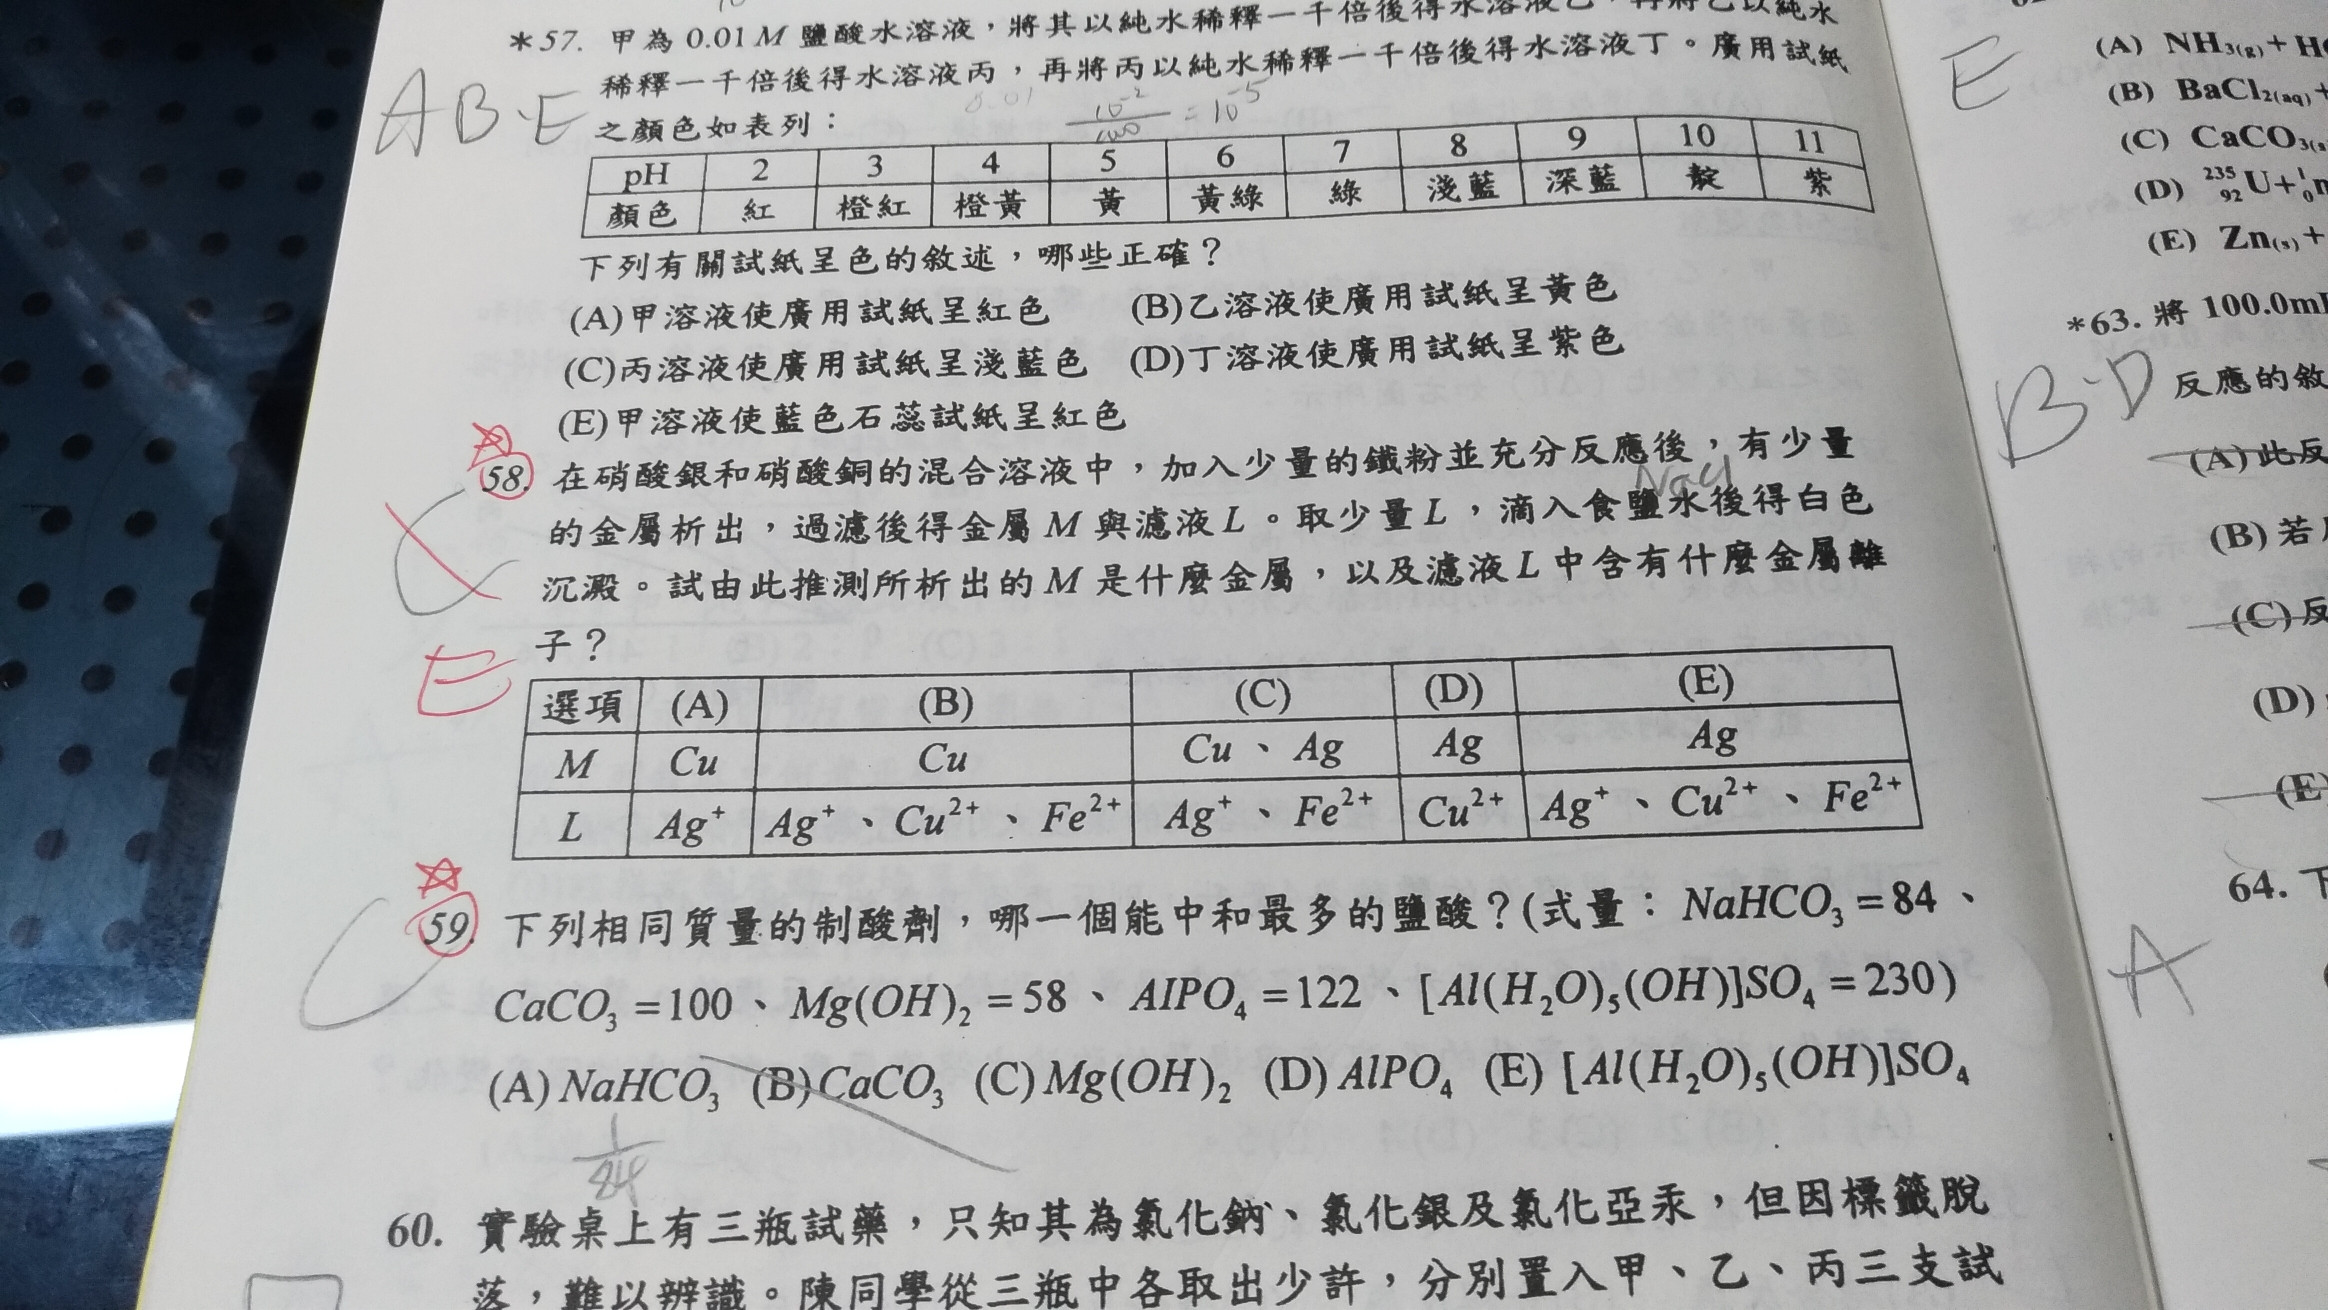 *57. 甲為 0.01 M 鹽酸水溶液，將其以純水稀釋一千倍後得水溶液乙，再將乙以純水
稀釋一千倍後得水溶液丙，再將丙以純水稀釋一千倍後得水溶液丁。廣用試紙
之顏色如表列：
A B E
0.01
10⁻²/1000 = 10⁻⁵
pH 2 3 4 5 6 7 8 9 10 11
顏色 紅 橙紅 橙黃 黃 黃綠 綠 淺藍 深藍 靛 紫
下列有關試紙呈色的敘述，哪些正確？
(A)甲溶液使廣用試紙呈紅色 (B)乙溶液使廣用試紙呈黃色
(C)丙溶液使廣用試紙呈淺藍色 (D)丁溶液使廣用試紙呈紫色
(E)甲溶液使藍色石蕊試紙呈紅色
58. 在硝酸銀和硝酸銅的混合溶液中，加入少量的鐵粉並充分反應後，有少量
NaCl
的金屬析出，過濾後得金屬 M 與濾液 L。取少量 L，滴入食鹽水後得白色
C
沉澱。試由此推測所析出的 M 是什麼金屬，以及濾液 L 中含有什麼金屬離
子？
E
選項 (A) (B) (C) (D) (E)
M Cu Cu Cu、Ag Ag Ag
L Ag⁺ Ag⁺、Cu²⁺、Fe²⁺ Ag⁺、Fe²⁺ Cu²⁺ Ag⁺、Cu²⁺、Fe²⁺
C
59. 下列相同質量的制酸劑，哪一個能中和最多的鹽酸？(式量：NaHCO₃ = 84、
CaCO₃ = 100、Mg(OH)₂ = 58、AlPO₄ = 122、[Al(H₂O)₅(OH)]SO₄ = 230)
(A) NaHCO₃ (B) CaCO₃ (C) Mg(OH)₂ (D) AlPO₄ (E) [Al(H₂O)₅(OH)]SO₄
1/84
60. 實驗桌上有三瓶試藥，只知其為氯化鈉、氯化銀及氯化亞汞，但因標籤脫
落，難以辨識。陳同學從三瓶中各取出少許，分別置入甲、乙、丙三支試
E
(A) NH₃(g) +
(B) BaCl₂(aq) +
(C) CaCO₃
(D) ²³⁵₉₂U + ¹₀n
(E) Zn(s) +
*63. 將 100.0
B D
反應的敘
(A) 此反
(B) 若
(C) 反
(D)
(E)
64. 下
A